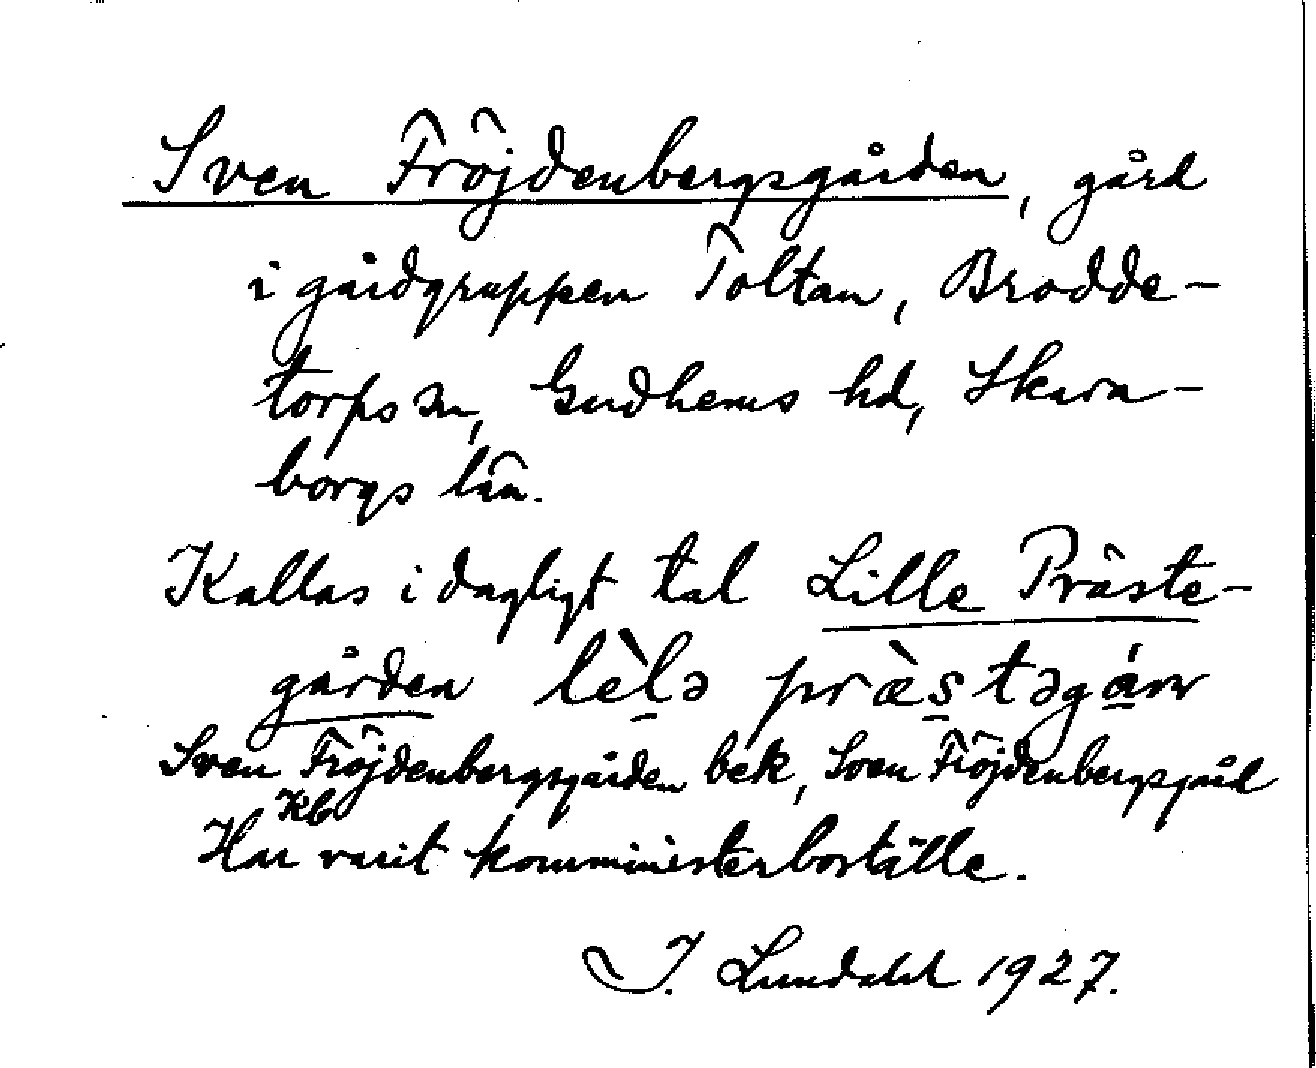 Sven Fröjdenbergsgården, gård
i gårdgruppen Toltan, Brodde-
torps sn, Gudhems hd, Skara-
borgs län.
Kallas i dagligt tal Lille Präste-
gården lèlə præ̀stəgárn
Sven Fröjdenbergsgården bek, Sven Fröjdenbergsgård
Kb
Har varit komministerboställe.
I. Lundahl 1927.